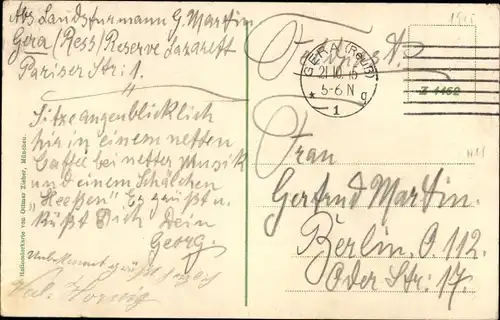 Abs Landsturmann G. Martin
Gera (Ress) Reserve Lazarett
Pariser Str. 1.
Sitze augenblicklich
hir in einem netten
Caffee bei netter Musik
und einem Schälchen
"Heeßen" Es grüßt u.
küßt Dich Dein
Georg.
Unbekannt grüßt
1915
Feldpost.
GERA (REUß)
21.10.15
5-6.N
* 1 g
Z 4462
Frau
Gertrud Martin.
Berlin. O 112.
Oder Str: 17.
Nationalkarte von Ottmar Zieher, München.